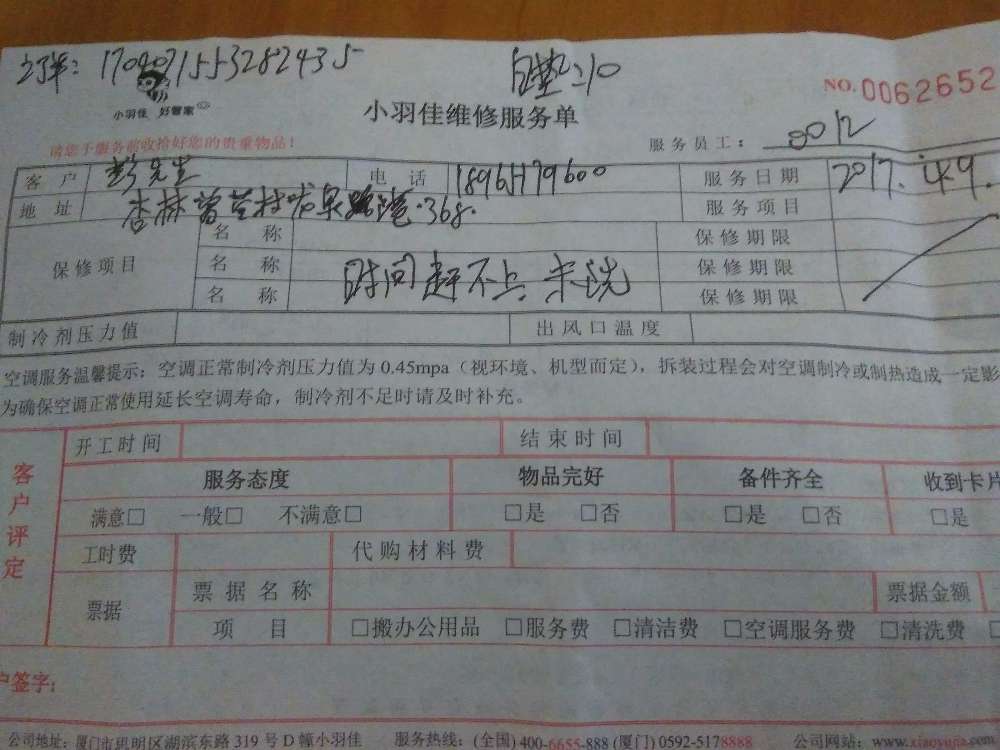 170407155328 2435
自垫:10
小羽佳 好管家
小羽佳维修服务单
NO.0062652
请您于服务前收拾好您的贵重物品！
服务员工： 8012
客户 彭先生 电话 服务日期 2017.4.9.
地址 服务项目
保修项目 名称 保修期限
名称 时间赶不上 未洗 保修期限
名称 保修期限
制冷剂压力值 出风口温度
空调服务温馨提示：空调正常制冷剂压力值为0.45mpa（视环境、机型而定），拆装过程会对空调制冷或制热造成一定影
为确保空调正常使用延长空调寿命，制冷剂不足时请及时补充。
客户评定
开工时间 结束时间
服务态度 物品完好 备件齐全 收到卡片
满意□ 一般□ 不满意□ □是 □否 □是 □否 □是
工时费 代购材料费
票据 票据名称 票据金额
项目 □搬办公用品 □服务费 □清洁费 □空调服务费 □清洗费
户签字：
公司地址：厦门市思明区湖滨东路319号D幢小羽佳 服务热线：(全国) 400-6655-888 (厦门) 0592-5178888 公司网站：www.xiaoyujia.com